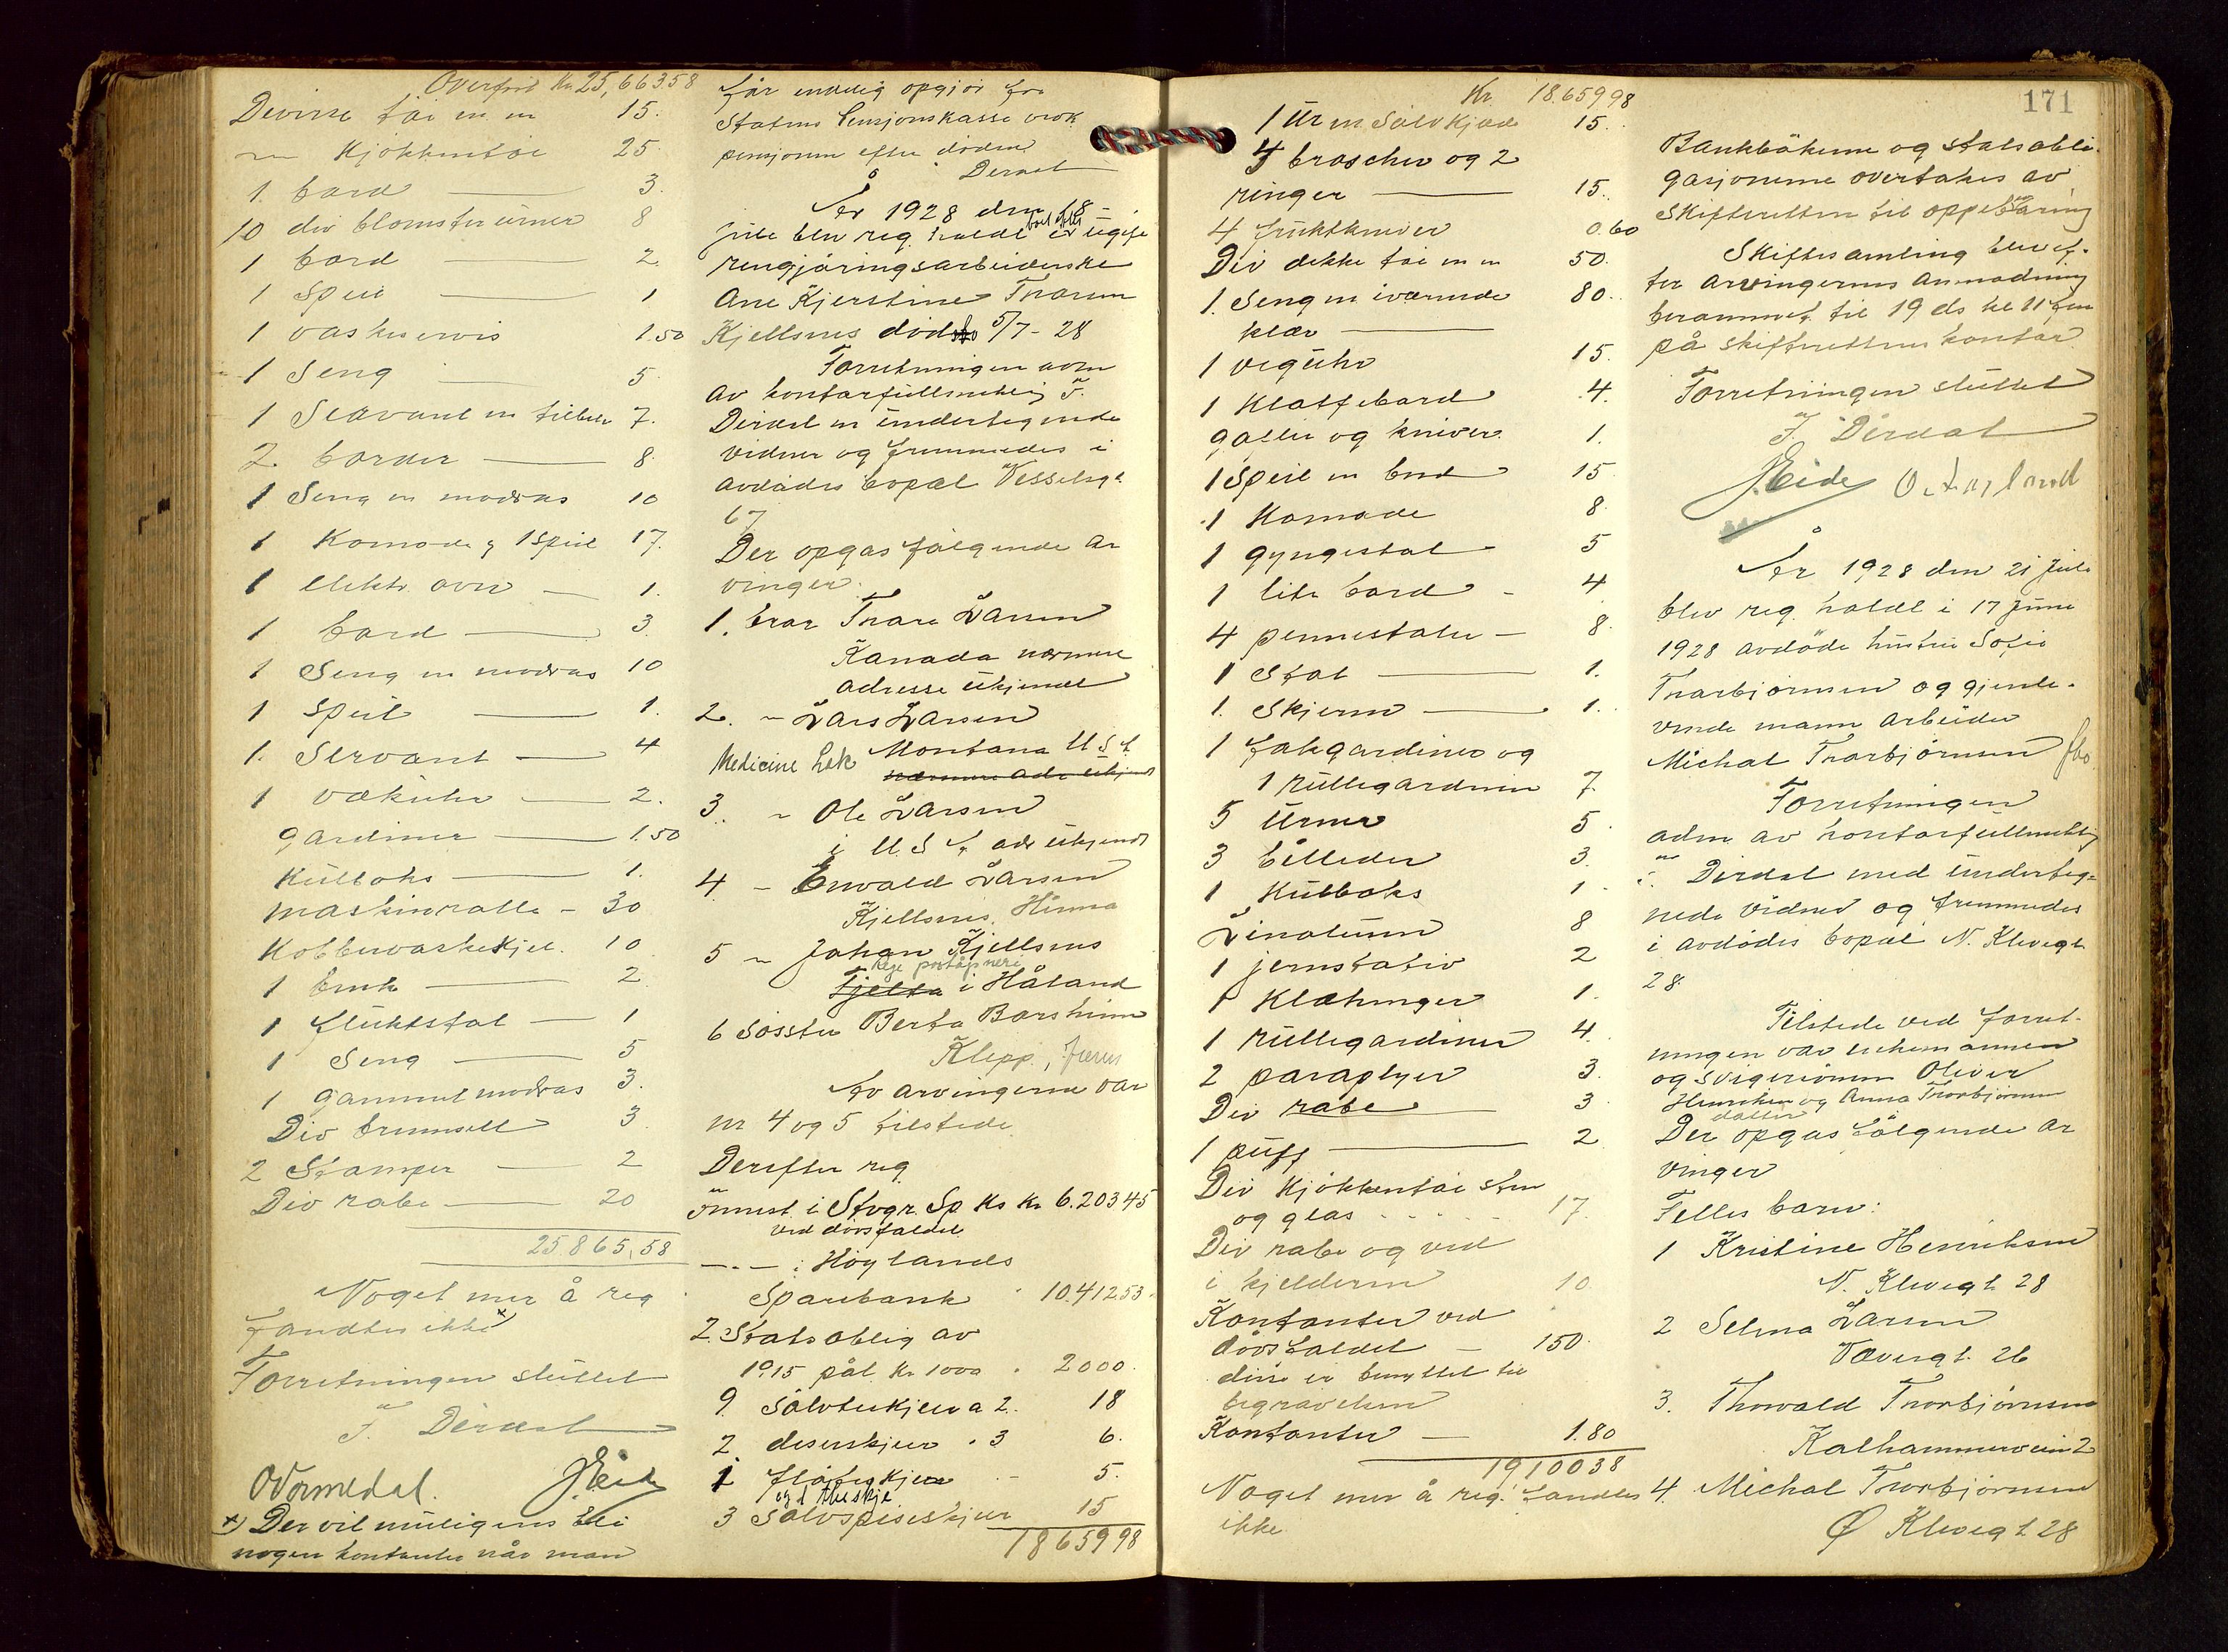 Overført Kr. 25,663.58
Diverse töi m m 15.
" Kjökkentöi 25.
1. bord 3.
10 div blomsterurner 8
1 bord 2.
1 Speil 1
1 vaskeservis 1.50
1 Seng 5
1 Servant m tilbeh 7.
2 border 8.
1 Seng m madras 10
1 Komode og 1 speil 17.
1 elektr. ovn 1.
1 bord 3.
1 Seng m madras 10
1 Speil 1.
1. Servant 4
1 vækeuhr 2.
gardiner 1.50
Kulboks 1.
maskinrulle 30
Kobbervaskekjel. 10
1 benk 2.
1 fluktstol 1
1 Seng 5
1 gammel madras 3.
Div brensel 3.
2 Stamper 2
Div rabe 20
25.865,58
Noget mer å reg
fandtes ikke x)
Forretningen sluttet
F. Dirdal
O Vormedal. J. Eide
x) Der vil muligens bli
nogen kontanter når man
får endelig opgjör fra
Statens Pensjonskasse vedk
pensjonen efter döden
Dirdal
År 1928 den 18
juli blev reg. holdt i boet efter ugift
rengjöringsarbeiderske
Ane Kjerstine Thorsen
Kjellsnes död 5/7-28
Forretningen adm
av kontorfullmektig F.
Dirdal m undertegnede
vidner og fremmedes i
avdödes bopæl Vesselsgt.
67
Der opgas fölgende ar
vinger.
1. bror Thore Larsen
Kanada nærmere
adresse ukjendt
2. " Lars Larsen
Medicine Lek Montana U S A.
nærmere adr ukjendt
3. " Ole Larsen
i U. S A, adr ukjendt
4. " Enwald Larsen
Kjellsnes. Hinna
5 " Johan Kjellsnes
Rege postopneri
Tjelta i Håland
6 Söster Berta Borsheim
Klepp, Jæren
Av arvingerne var
nr 4 og 5 tilstede
Derefter reg
Innest. i Stvgr. Sp Ks Kr. 6.20345
ved dödsfaldet
— " — i Höylands
Sparebank " 10.41253
2 Statsoblig av
1915 pål. kr 1000 " 2000.
9 sölvteskjeer a 2. 18
2 desertskjeer " 3 6.
1 flöteskje 5.
og 1 theskje
3 Sölvspiseskjeer 15
1865998
Kr. 18.65998
171
1 Ur m Sölvkjede 15.
4 broscher og 2
ringer 15.
4 fruktkniver 0.60
Div dekke töi m m 50.
1. Seng m iværende 80.
klær
1 veguhr 15.
1 Klaffebord 4.
gafler og kniver 1.
1 Speil m bord 15
1 Komode 8.
1 gyngestol 5
1 lite bord 4
4 pinnestoler 8.
1 Stol 1.
1. Skjerm 1.
1 fakgardiner og
1 rullegardin 7.
5 Urner 5.
3 billeder 3.
1 Kulboks 1.
Linoleum 8
1 jernstativ 2
1 Klæhenger 1.
1 rullegardiner 4.
2 paraplyer 3.
Div rabe 3
1 puff 2
Div Kjökkentöi sten
og glas 17.
Div rabe og ved
i kjelderen 10.
Kontanter ved
dödsfaldet 150.
disse er benyttet til
begravelsen
Kontanter 1.80
1910038
Noget mer å reg. fandtes
ikke.
Bankbökerne og statsobli-
gasjonerne overtakes av
Skifteretten til oppebæring
Skiftesamling blev ef-
ter arvingernes anmodning
berammet til 19 ds kl 11 fm
på skifterettens kontor
Forretningen sluttet
F. Dirdal
J. Eide
År 1928 den 21 juli
blev reg. holdt i 17 Juni
1928 avdöde hustru Sofie
Thorbjörnsen og gjenle-
vende mann Arbeider
Michal Thorbjörnsen fbo.
Forretningen
adm av kontorfullmektig
F. Dirdal med underteg-
nede vidner og fremmedes
i avdödes bopæl N. Klevegt.
28.
Tilstede ved forret-
ningen var enkemannen
og svigersönnen Oliver
Henriksen og Anna Thorbjörnsen
datter
Der opgas fölgende ar
vinger
Felles barn:
1 Kristine Henriksen
N. Klevegt. 28
2 Selma Larsen
Vævergt. 26
3. Thorvald Thorbjörnsen
Kalhammerveien 2
4. Michal Thorbjörnsen
Ø Klevegt. 28